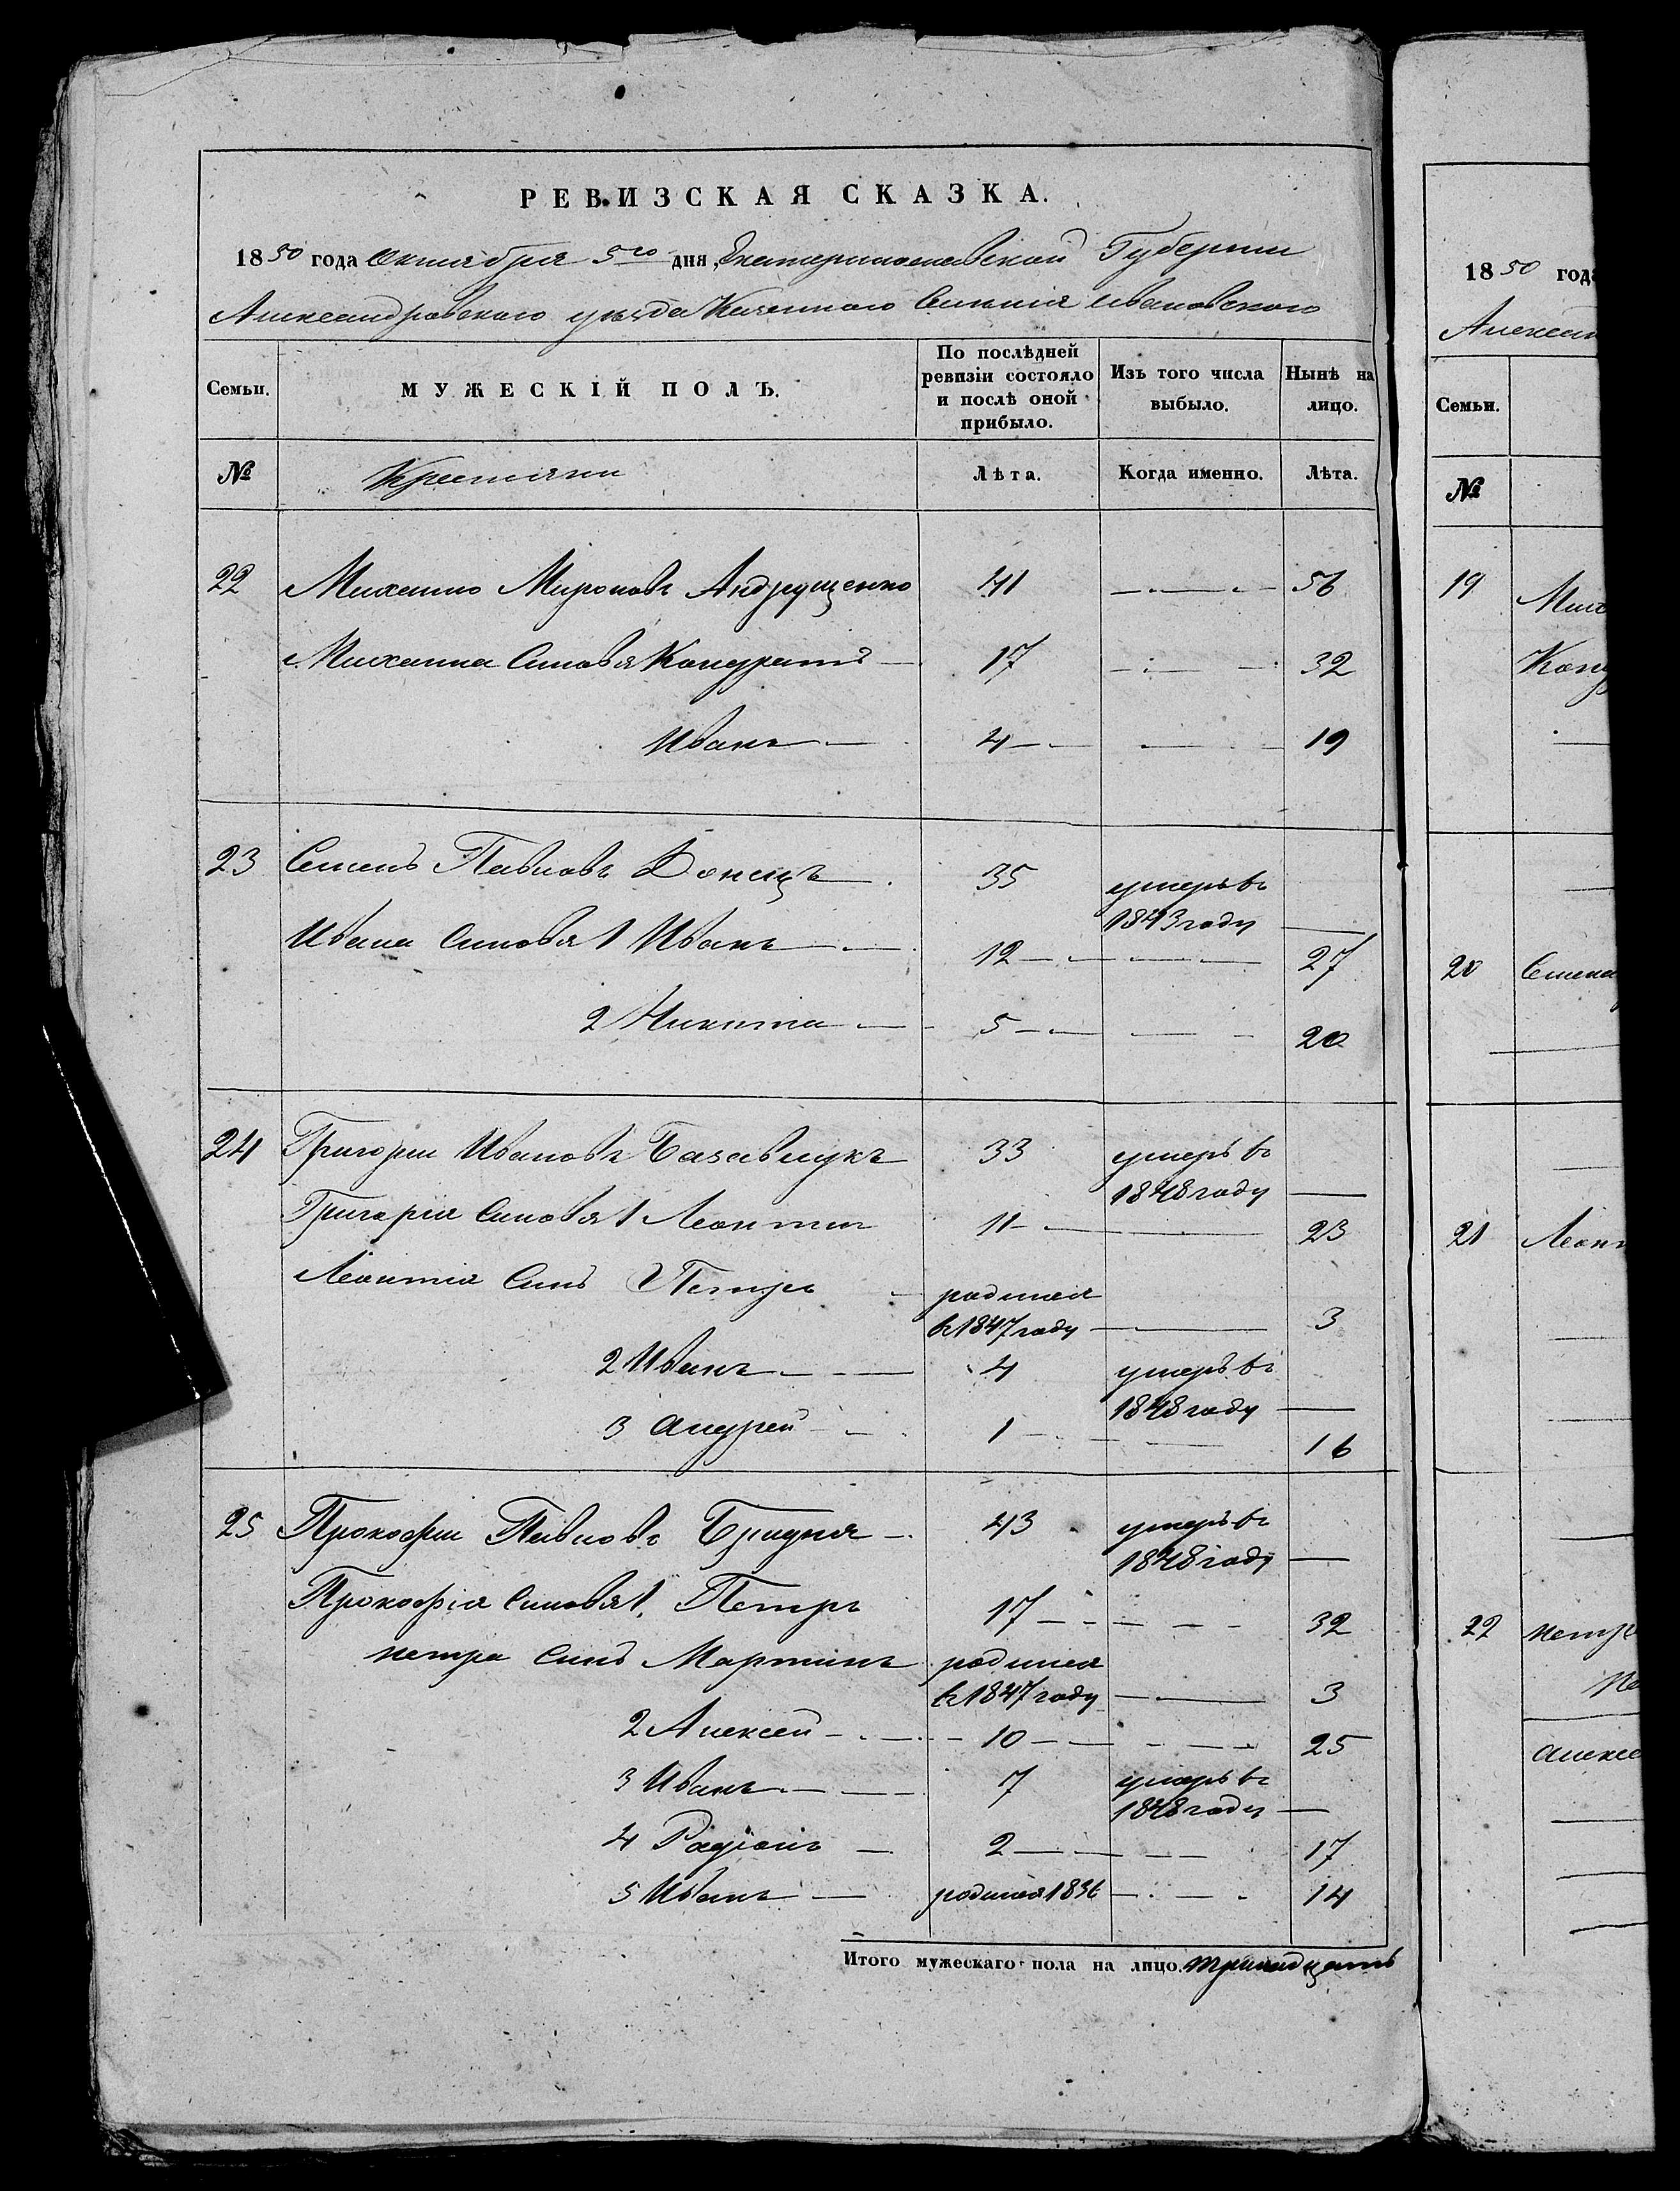 РЕВИЗСКАЯ СКАЗКА.
1850 года Октября 5го дня, Екатеринославской Губернии
Александровского уезда Казенного Селения Ивановского
Семьи. МУЖЕСКІЙ ПОЛЪ. По послѣдней ревизіи состояло и послѣ оной прибыло. Изъ того числа выбыло. Нынѣ на лицо.
№ Крестяни Лѣта. Когда именно. Лѣта.
22 Михайло Мироновъ Андрущенко 41 — 56
Михаила Синовя Кондратъ — 17 — 32
Иванъ — 4 — 19
23 Семенъ Павловъ Донецъ — 35 умеръ въ
1843 году —
Ивана Синовя 1 Иванъ — 12 — 27
2 Никита — 5 — 20
24 Григории Ивановъ Базавлукъ 33 умеръ въ
1848 году —
Григорія Синовя 1 Леонтии 11 — 23
Леонтія Синъ Петръ родился
въ 1847 году — 3
2 Иванъ — 4 умеръ въ
1848 году —
3 Андреи — 1 — 16
25 Прокофии Павловъ Бридня — 43 умеръ въ
1848 году —
Прокофія Синовя 1. Петръ 17 — 32
петра Синъ Мартинъ родился
въ 1847 году — 3
2 Алексеи — 10 — 25
3 Иванъ — 7 умеръ въ
1848 году —
4 Радіонъ — 2 — 17
5 Иванъ — родился 1836 — 14
Итого мужескаго пола на лицо. тринадцать
1850 года
Алексан
Семьи.
№
19 Мих
Конд
20 Семена
21 Леонт
22 петр
Алексе